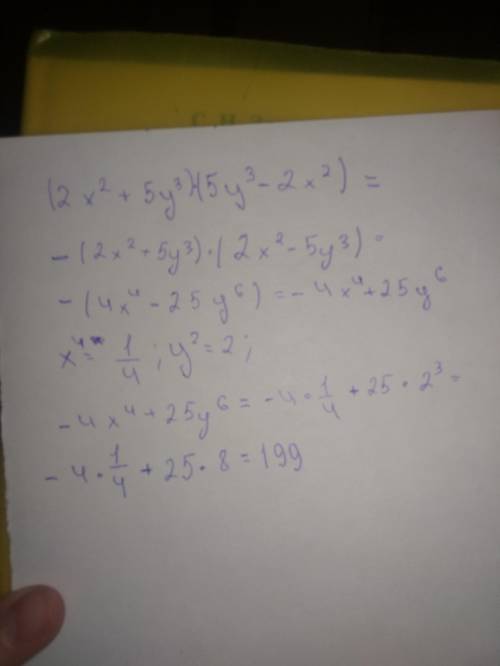 (2x² + 5y³)(5y³ - 2x²) =
- (2x² + 5y³) · (2x² - 5y³) =
- (4x⁴ - 25y⁶) = - 4x⁴ + 25y⁶
x⁴ = 1/4 ; y² = 2 ;
- 4x⁴ + 25y⁶ = - 4 · 1/4 + 25 · 2³ =
- 4 · 1/4 + 25 · 8 = 199